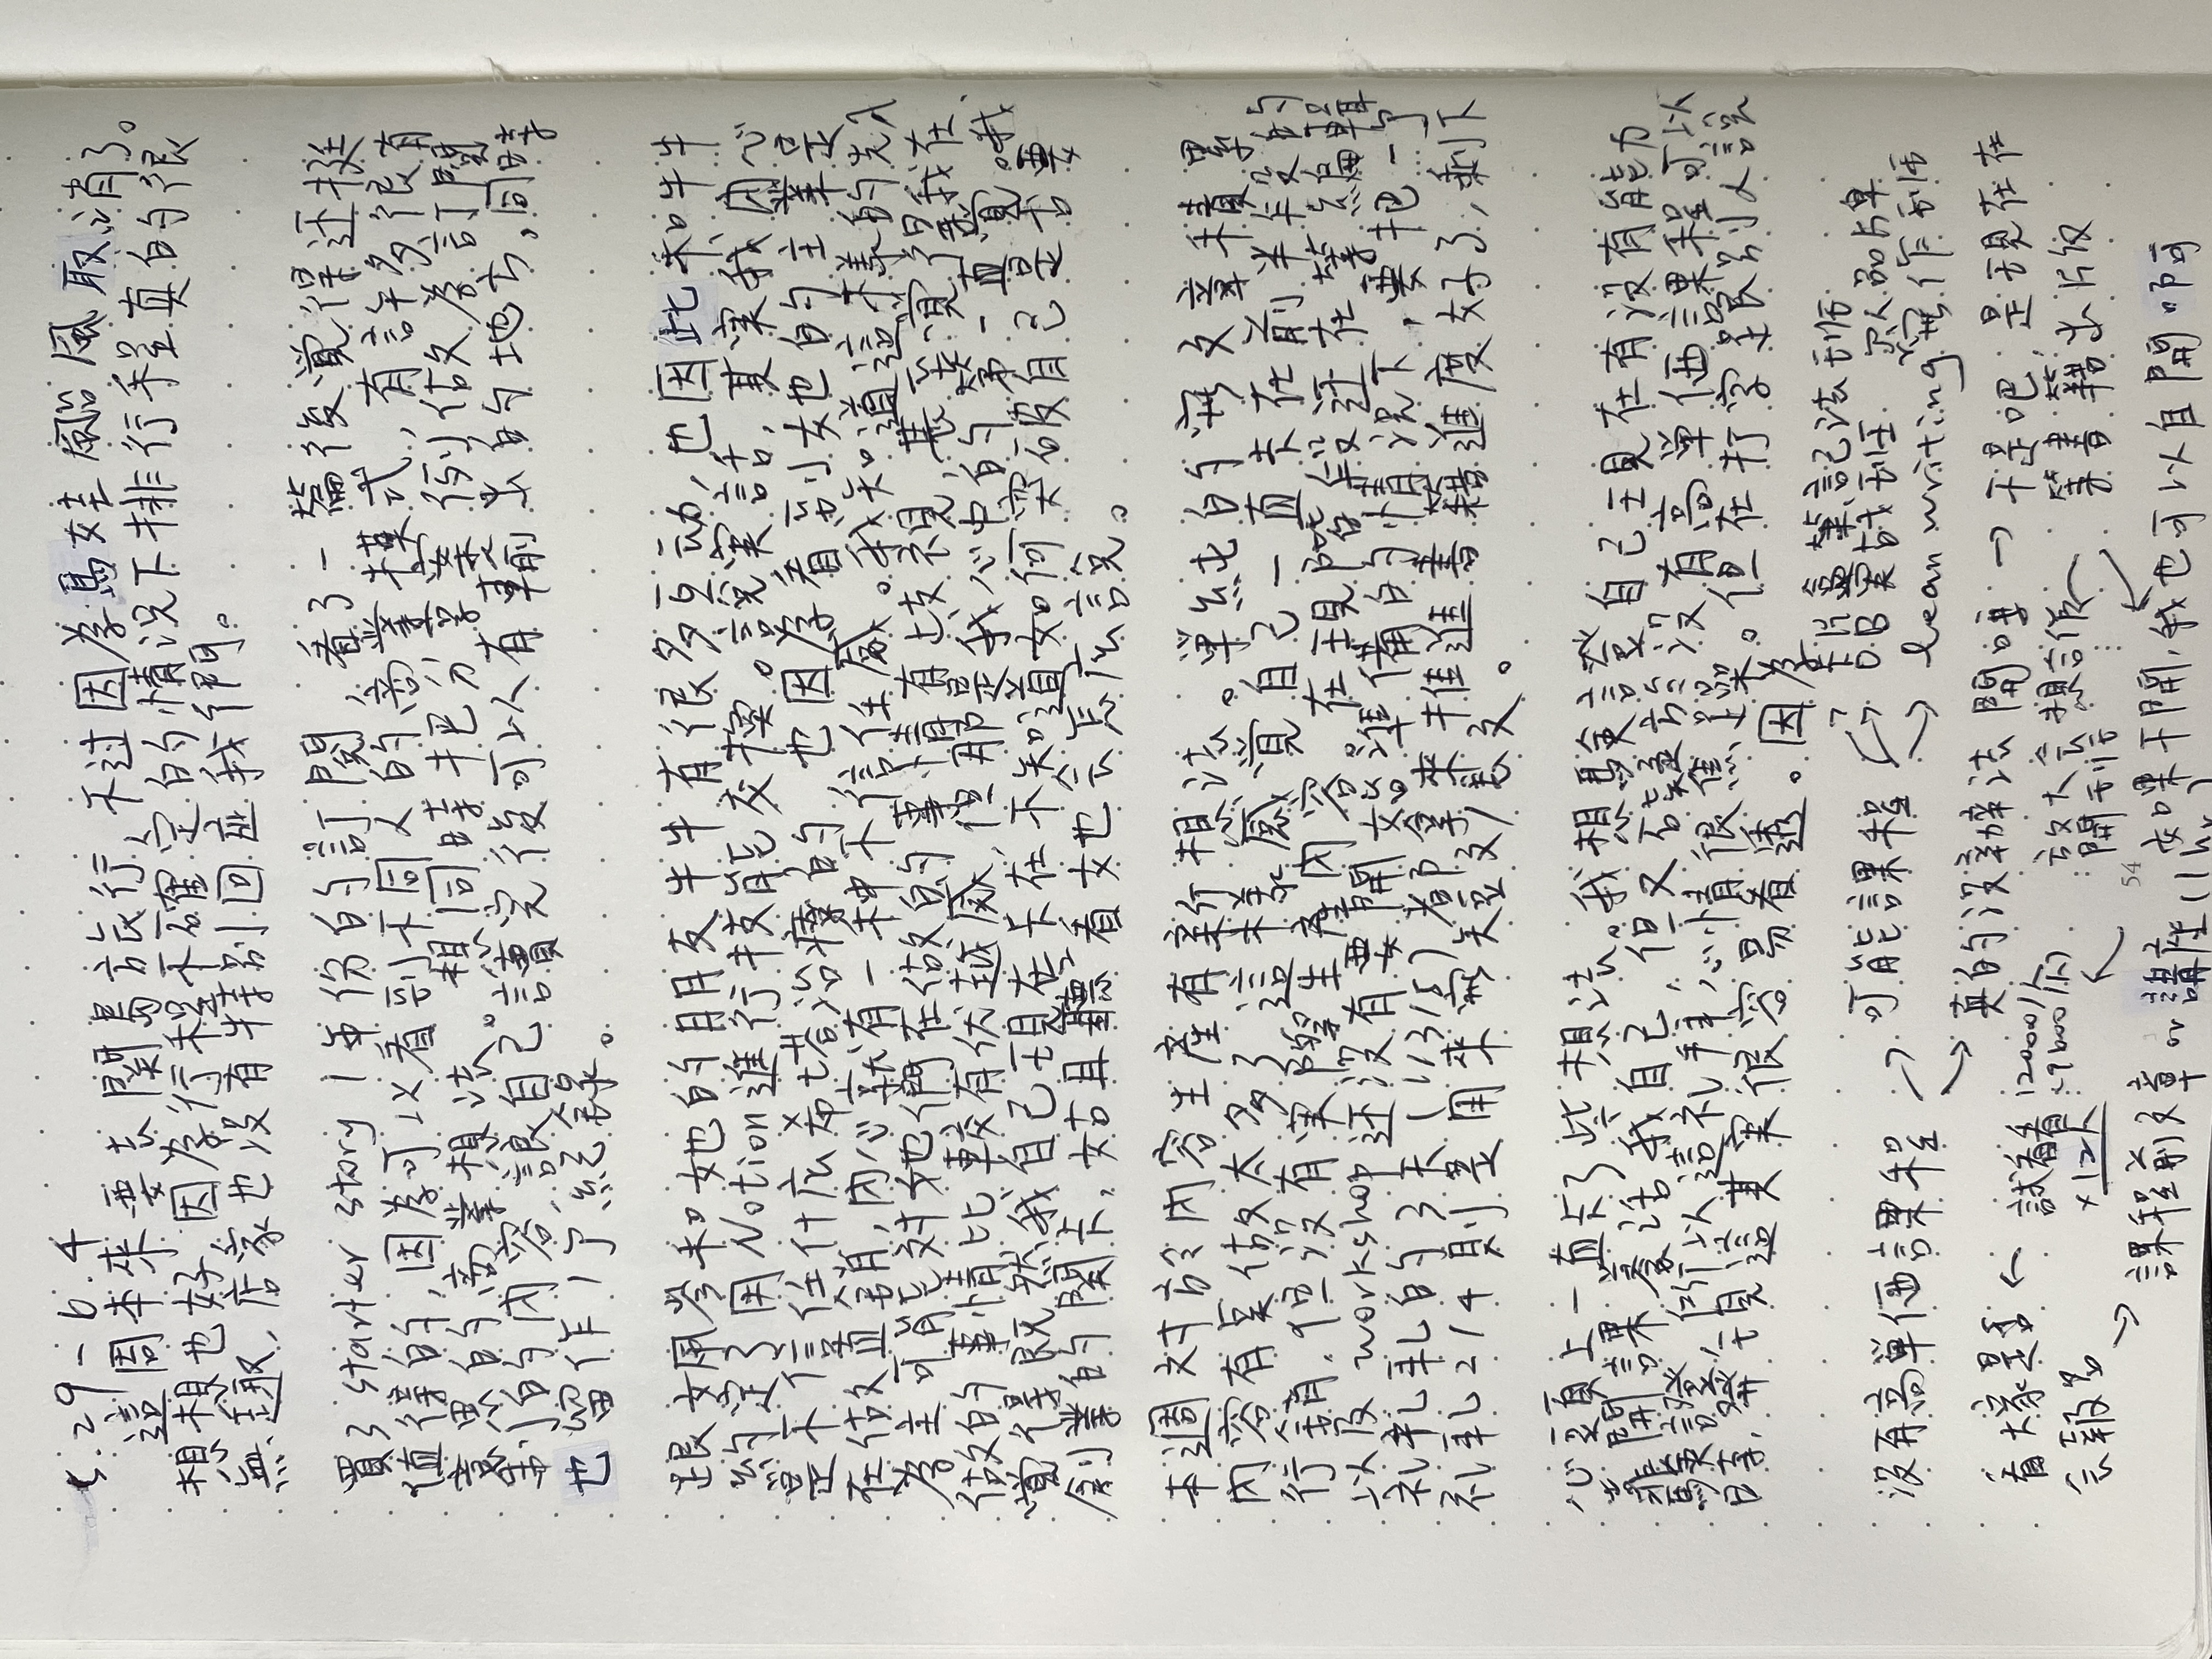 5.29-6.4
這周本來要去關島旅行,不过因為馬娃颱風取消了。
想想也好,因為行程不確定的情況下排行程真的很
無趣,店家也沒有特別回应我們。
買了 starter story 1年份的訂閱,看了一篇後覺得还挺
值得的,因為可以看到不同人的商業模式,有許多很有
意思的商業想法。想同時把分享案例做為訂閱
制的內容,讓自己讀完後可以有輸出的地方。同時
也留作1个紀錄。
跟姵岑和她的朋友牛牛有很多互动,也因此和牛牛
約定了用Notion進行技能交換。說实話,其实我内心
是不信任什広希塔治療的,也因為看到她的主業是
在做直銷,内心就有一种不信任感。我知道這樣的先入
為主可能对他們在做的事情有歧視,甚至覺得我在
做的事情比較有优越感,但那是我心中的第一直覺。我
覺得既然我自己現在卡在不知道如何突破自己是否要
創業的關卡,姑且聽2看她会怎広說。
本週对於内容生產有新想法。單純的寫文章積累
内容有点做太多了,這樣感覺自己一直卡在前半段的
行銷,但沒有实際生產内容。在現階段还在等編輯
以及 workshop 还沒有要開始準備的情況下,要把一个
礼拜的3天(1/3/5)都拿來推進書籍進度好了,剩下
礼拜2/4則是用來寫短文/長文。
心頭上一直卡了些想法。我想驗證自己現在有没有能力
靠開課養活我自己,但又碍於沒有高單価課程可以
驗證,所以這礼拜心情很焦躁。但在打字跟別人說
時,發現這其实很容易看透。因為
没有高單価課程 → 可能課程 → 卡片盒筆記法班
→ OB 实战班 个人品牌
→ lean writing 寫作班
→ 真的沒辦法開嗎 → 不是吧,是現在在
等書籍出版
放大会想訂作
開班
12000/人
9600/人
試看看
×12人
看大家是否
会報名
→ 課程前文章 or 講座(1hr)
如果不開,我也可以自開啊
54